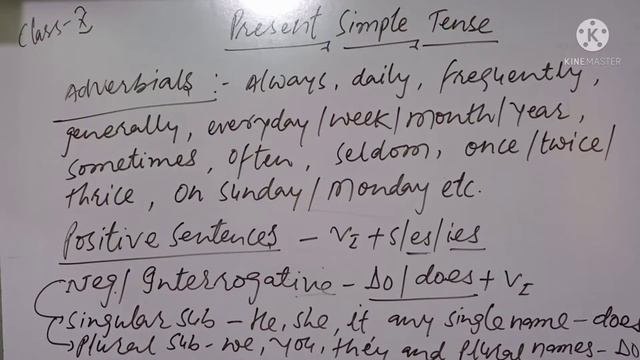 Class-X
Present Simple Tense
KINEMASTER
Adverbials :- Always, daily, frequently,
generally, everyday/week/month/year,
sometimes, often, seldom, once/twice/
thrice, On Sunday/Monday etc.
Positive Sentences - V₁ + s/es/ies
Neg/ Interrogative - Do/does + V₁
Singular Sub - He, She, it any single name - does
Plural Sub - we, you, they and plural names - Do